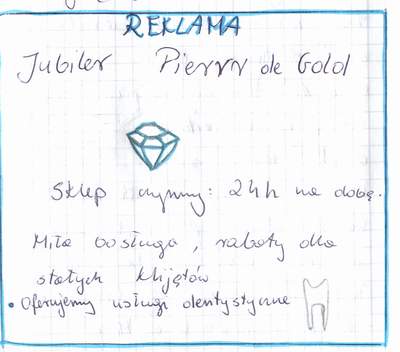 REKLAMA
Jubiler Pierrr de Gold
Sklep czynny: 24h na dobę.
Miła obsługa, rabaty dla
stałych klijętów
• Oferujemy usługi dentystyczne